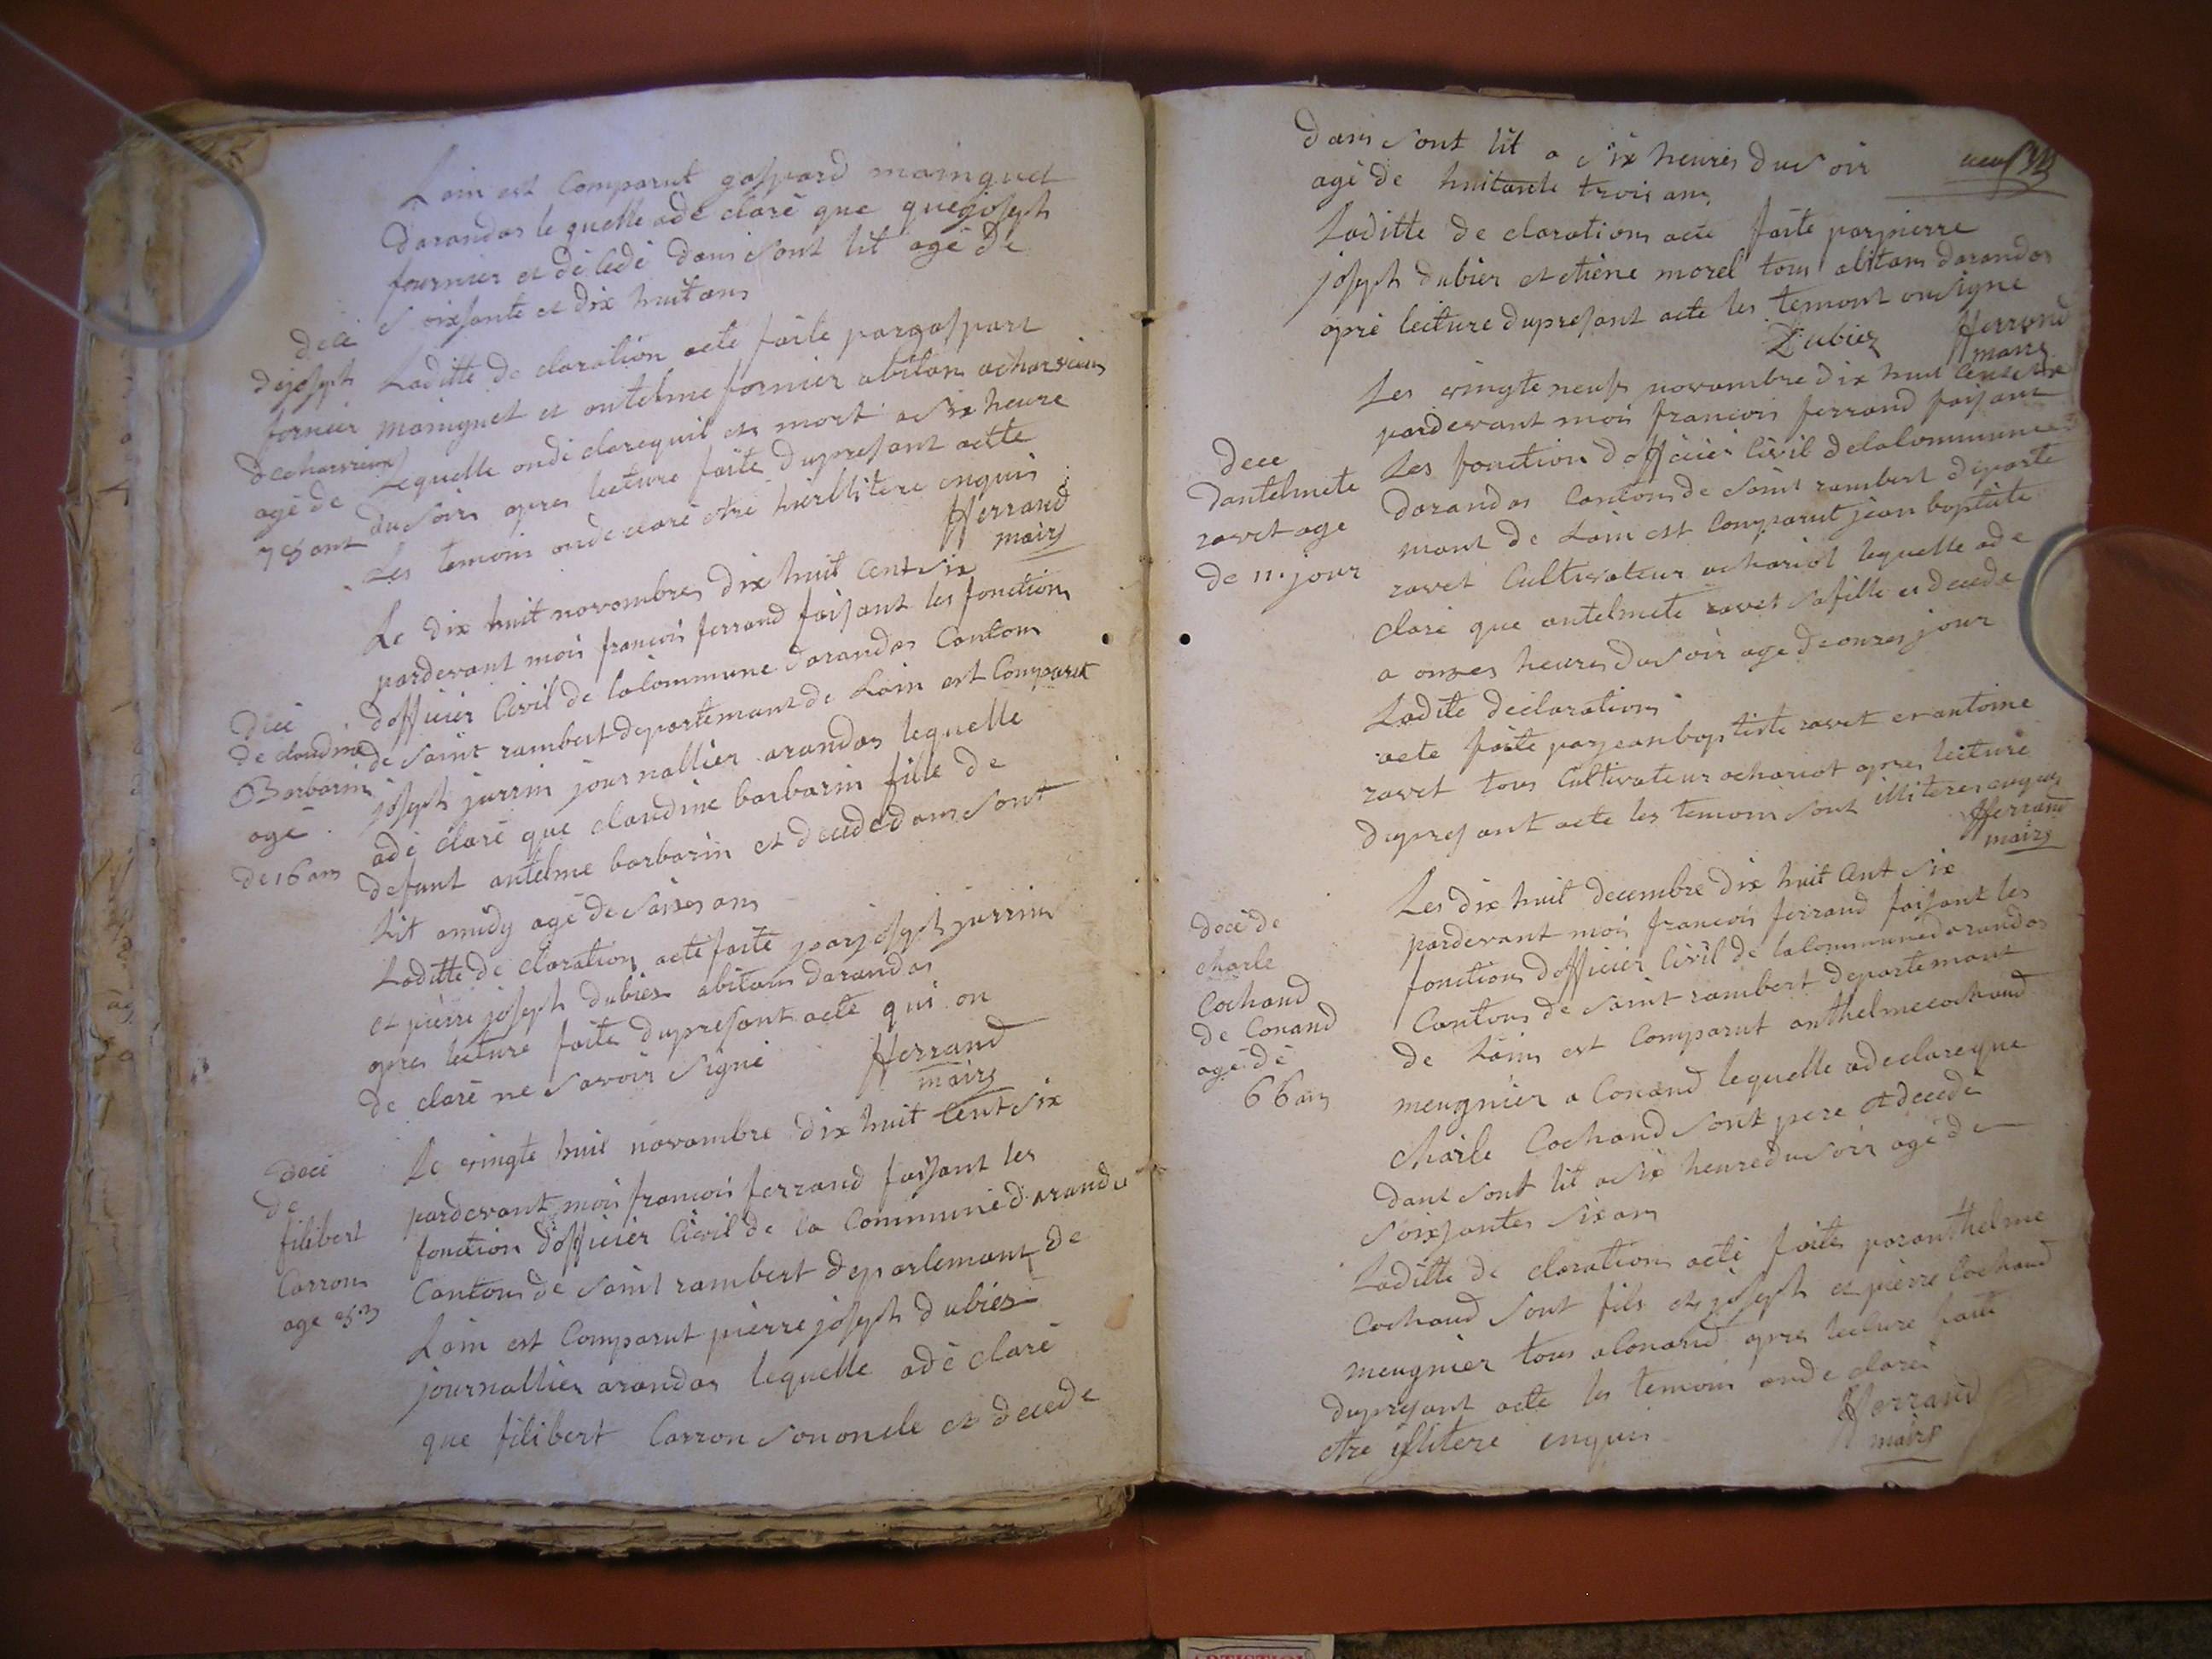 Lain est Comparut gaspard mainguet
darandas le quelle adé claré que que joseph
fournier et dé cédé dans sont lit agé de
soixsante et dix huit ans
décé
de joseph
fornier
de charvieux
agé de
78 ant
Laditte de claration acte faite par gaspart
mainguet et antelme fornier abitan a charvieux
Lequelle on dé claré quil et mort a six heure
du soir apres lecture faite du presant actte
Les temoin on de claré etre hiellitere enquis
fferrand
maire
Le dix huit novambre dix huit Cent six
pardevant moi francois ferrand faisant les fonction
dofficier Civil de la Commune darandas Canton
de saint rambert departemant de Lain est Comparut
joseph jurrin journallier arandas lequelle
adé claré que claudine barbarin fille de
defunt antelme barbarin et decede dans sont
Lit amidy agé de saize ans
décé
de claudine
Barbarin
agé
de 16 ans
Laditte de claration acte faite par joseph jurrin
et pierre joseph dubier abitans darandas
apres lecture faite du presant acte qui on
de claré ne savoir signé
fferrand
maire
Le vingte huit novambre dix huit Cent six
pardevant moi francois ferrand faisant les
fonction dofficier Civil de la Commune darandas
Canton de saint rambert departemant de
Lain est Comparut pierre joseph dubier
journallier arandas lequelle adé claré
que filibert Carron son oncle et decede
décé
de
filibert
Carron
age 83
dans sont lit a six heures du soir
agé de huitante trois ans
Laditte de claration acte faite par pierre
joseph dubier et etiene morel tous abitans darandas
apré lecture du presant acte les temont on signe
Dubiez
fferrand
maire
Les vingte neufs novambre dix huit Cent six
pardevant moi francois ferrand faisant
Les fonction dofficier Civil de la Commune
darandas Canton de saint rambert departe
mant de Lain est Comparut jean baptiste
ravet Cultivateur a chariot lequelle ade
claré que antelmete ravet sa fille et decede
a onzes heures du soir age de onzes jour
dece
dantelmete
ravet age
de 11 jour
Ladite déclaration
acte faite par jean baptiste ravet et antoine
ravet tous Cultivateur a chariot apres lecture
du presant acte les temoin sont illiteres enquis
fferrand
maire
Les dix huit decembre dix huit Cent six
pardevant moi francois ferrand faisant les
fonction dofficier Civil de la Commune darandas
Canton de saint rambert departemant
de Lain est Comparut anthelme cochand
meugnier a Conand lequelle a declare que
Charle Cochand sont pere et decedé
dans sont lit a six heure du soir agé de
soixsantes six ans
décé de
charle
Cochand
de Conand
agé de
66 ans
Laditte de claration acte faite par anthelme
Cochand sont fils et joseph et pierre Cochand
meugnier tous a Conand apres lecture faite
du presant acte les temoin on de claré
etre illitere enquis
fferrand
maire